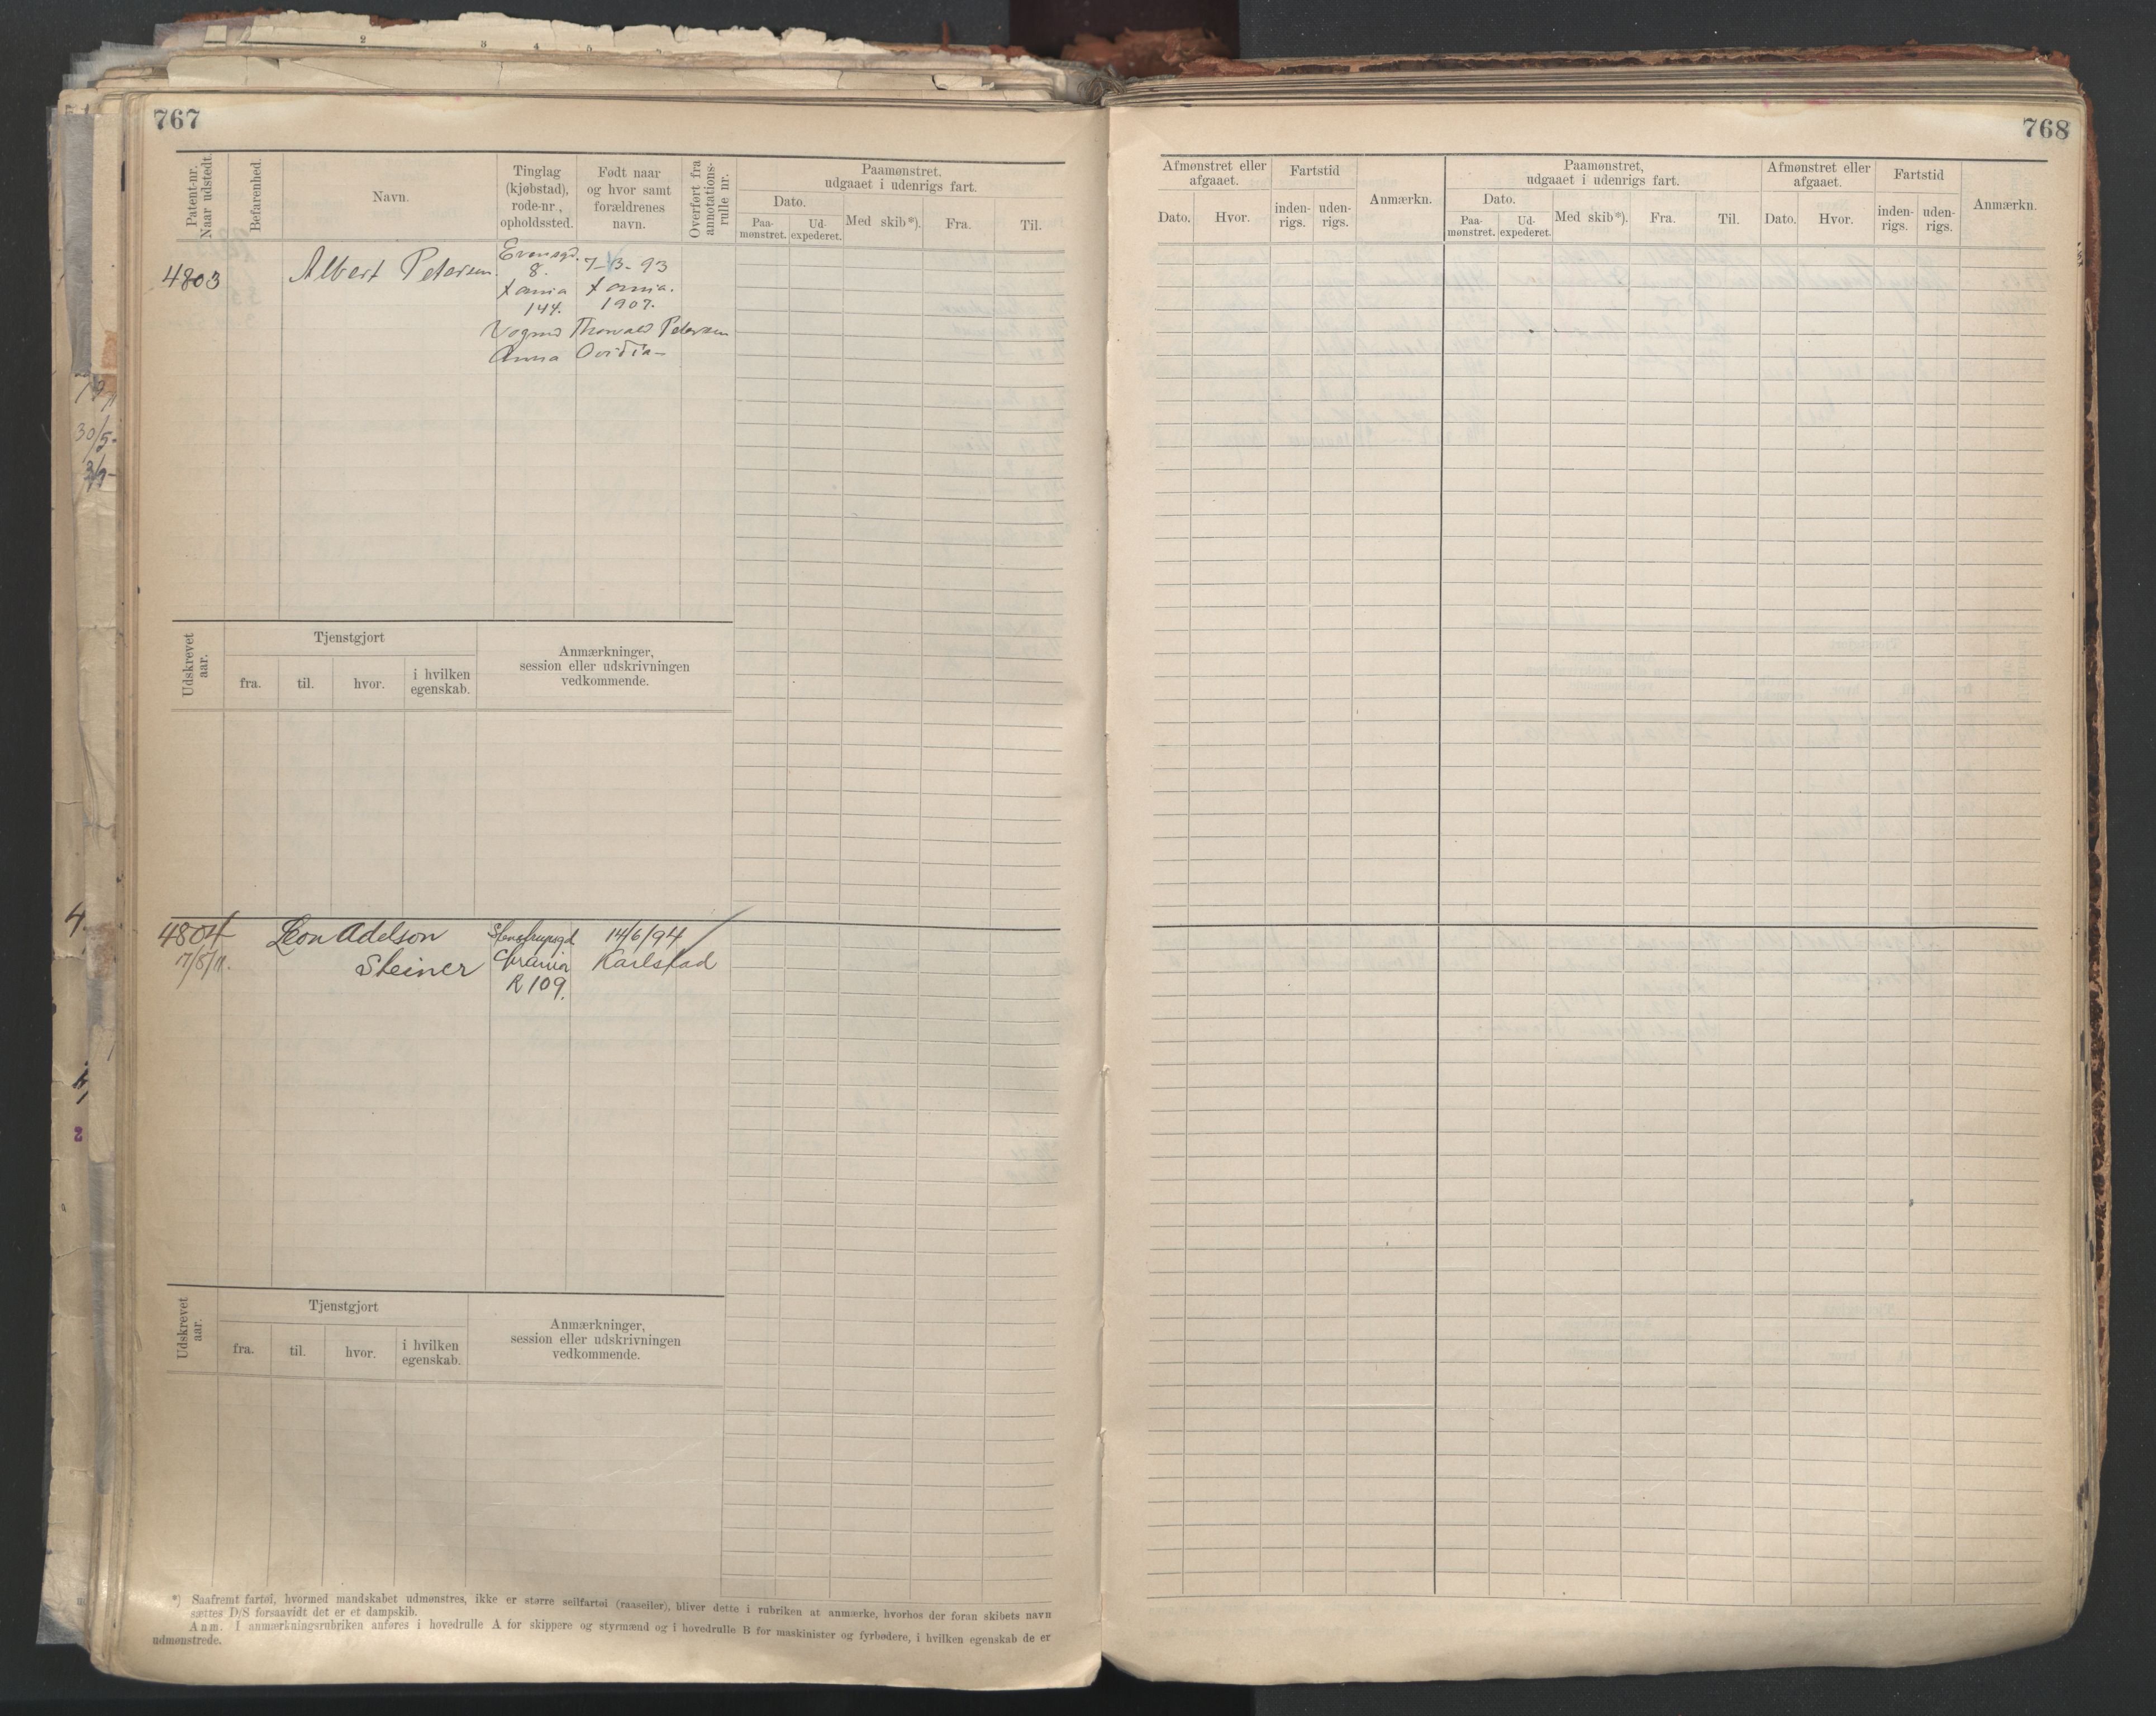 767
Patent-nr.
Naar udstedt.
Befarenhed.
Navn.
Tinglag
(kjøbstad),
rode-nr.,
opholdssted.
Født naar
og hvor samt
forældrenes
navn.
Overført fra
annotations-
rulle nr.
Paamønstret,
udgaaet i udenrigs fart.
Dato.
Paa-
mønstret.
Ud-
expederet.
Med skib*).
Fra.
Til.
4803
Albert Petersen.
8.
Xania
144.
7-3-93
Xania.
1907.
Thorvald Petersen
Anna Ovidia-
Udskrevet
aar.
Tjenstgjort
fra.
til.
hvor.
i hvilken
egenskab.
Anmærkninger,
session eller udskrivningen
vedkommende.
4804
7/8/11.
Leon Adelson
Steiner
Stenstrupsgd
Chrania
R 109.
14/6/94
Karlstad
Udskrevet
aar.
Tjenstgjort
fra.
til.
hvor.
i hvilken
egenskab.
Anmærkninger,
session eller udskrivningen
vedkommende.
*) Saafremt fartøi, hvormed mandskabet udmønstres, ikke er større seilfartøi (raaseiler), bliver dette i rubriken at anmærke, hvorhos der foran skibets navn
sættes D/S forsaavidt det er et dampskib.
Anm. I anmærkningsrubriken anføres i hovedrulle A for skippere og styrmænd og i hovedrulle B for maskinister og fyrbødere, i hvilken egenskab de er
udmønstrede.
768
Afmønstret eller
afgaaet.
Dato.
Hvor.
Fartstid
inden-
rigs.
uden-
rigs.
Anmærkn.
Paamønstret,
udgaaet i udenrigs fart.
Dato.
Paa-
mønstret.
Ud-
expederet.
Med skib*).
Fra.
Til.
Afmønstret eller
afgaaet.
Dato.
Hvor.
Fartstid
inden-
rigs.
uden-
rigs.
Anmærkn.